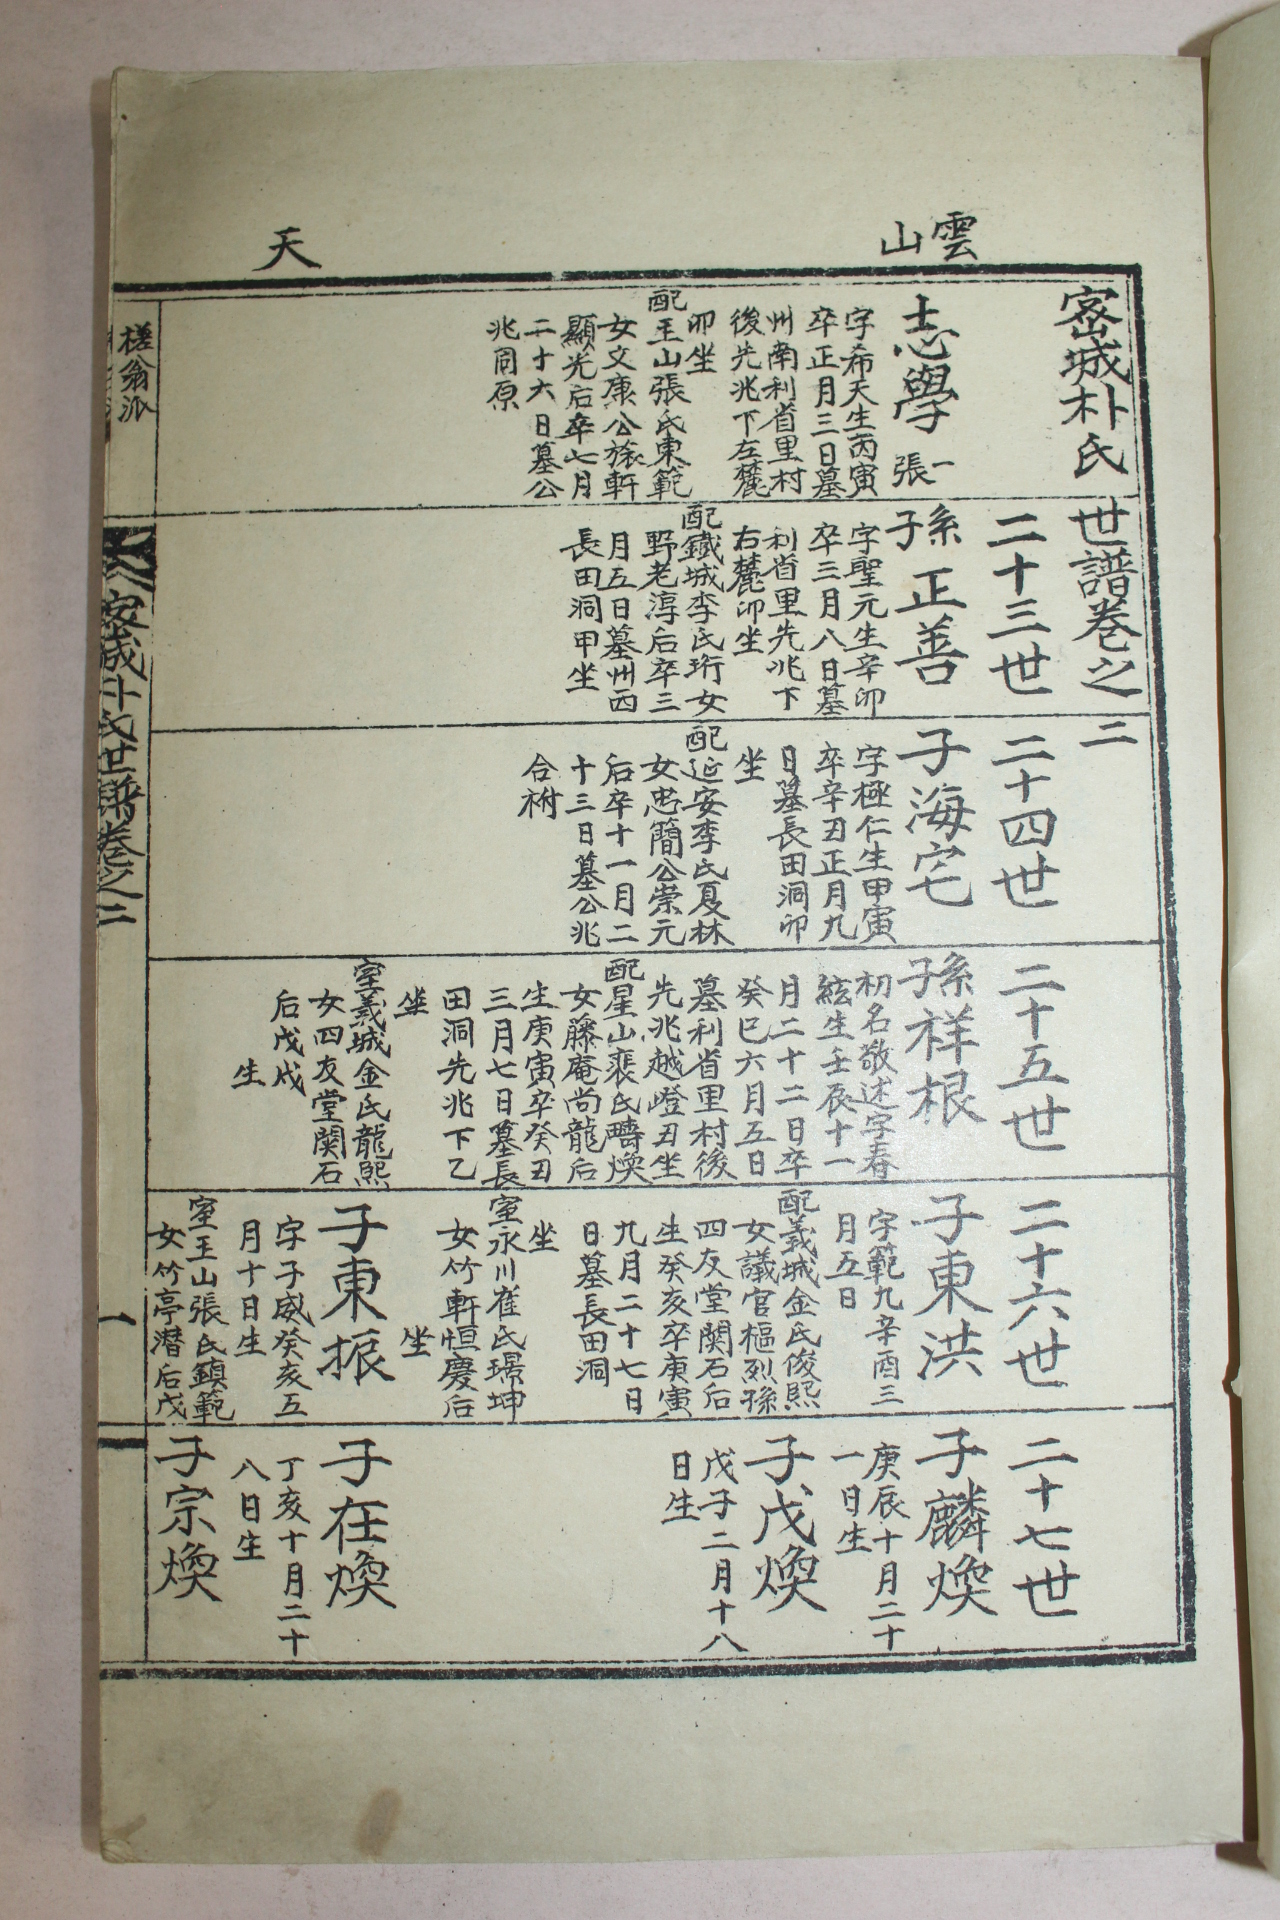 雲山
天
密城朴氏世譜卷之二
志學
張一
字希天生丙寅
卒正月三日墓
州南利省里村
後先兆下左麓
卯坐
配玉山張氏東範
女文康公旅軒
顯光后卒七月
二十六日墓公
兆同原
二十三世
孫正善
字聖元生辛卯
卒三月八日墓
利省里先兆下
右麓卯坐
配鐵城李氏珩女
野老淳后卒三
月五日墓州西
長田洞甲坐
二十四世
子海宅
字極仁生甲寅
卒辛丑正月九
日墓長田洞卯
坐
配延安李氏夏林
女忠簡公崇元
后卒十一月二
十三日墓公兆
合祔
二十五世
孫祥根
初名敬述字春
絃生壬辰十一
月二十二日卒
癸巳六月五日
墓利省里村後
先兆越嶝丑坐
配星山裵氏疇煥
女藤庵尚龍后
生庚寅卒癸丑
三月七日墓長
田洞先兆下乙
坐
室義城金氏龍熙
女四友堂關石
后戊戌
生
二十六世
子東洪
字範九辛酉三
月五日
配義城金氏俊熙
女議官樞烈孫
四友堂關石后
生癸亥卒庚寅
九月二十七日
日墓長田洞
坐
室永川崔氏璟坤
女竹軒恒慶后
坐
子東振
字子威癸亥五
月十日生
室玉山張氏鎮範
女竹亭潛后戊
二十七世
子麟煥
庚辰十月二十
一日生
子戊煥
戊子二月十八
日生
子在煥
丁亥十月二十
八日生
子宗煥
槎翁派
密城朴氏世譜卷之二
一